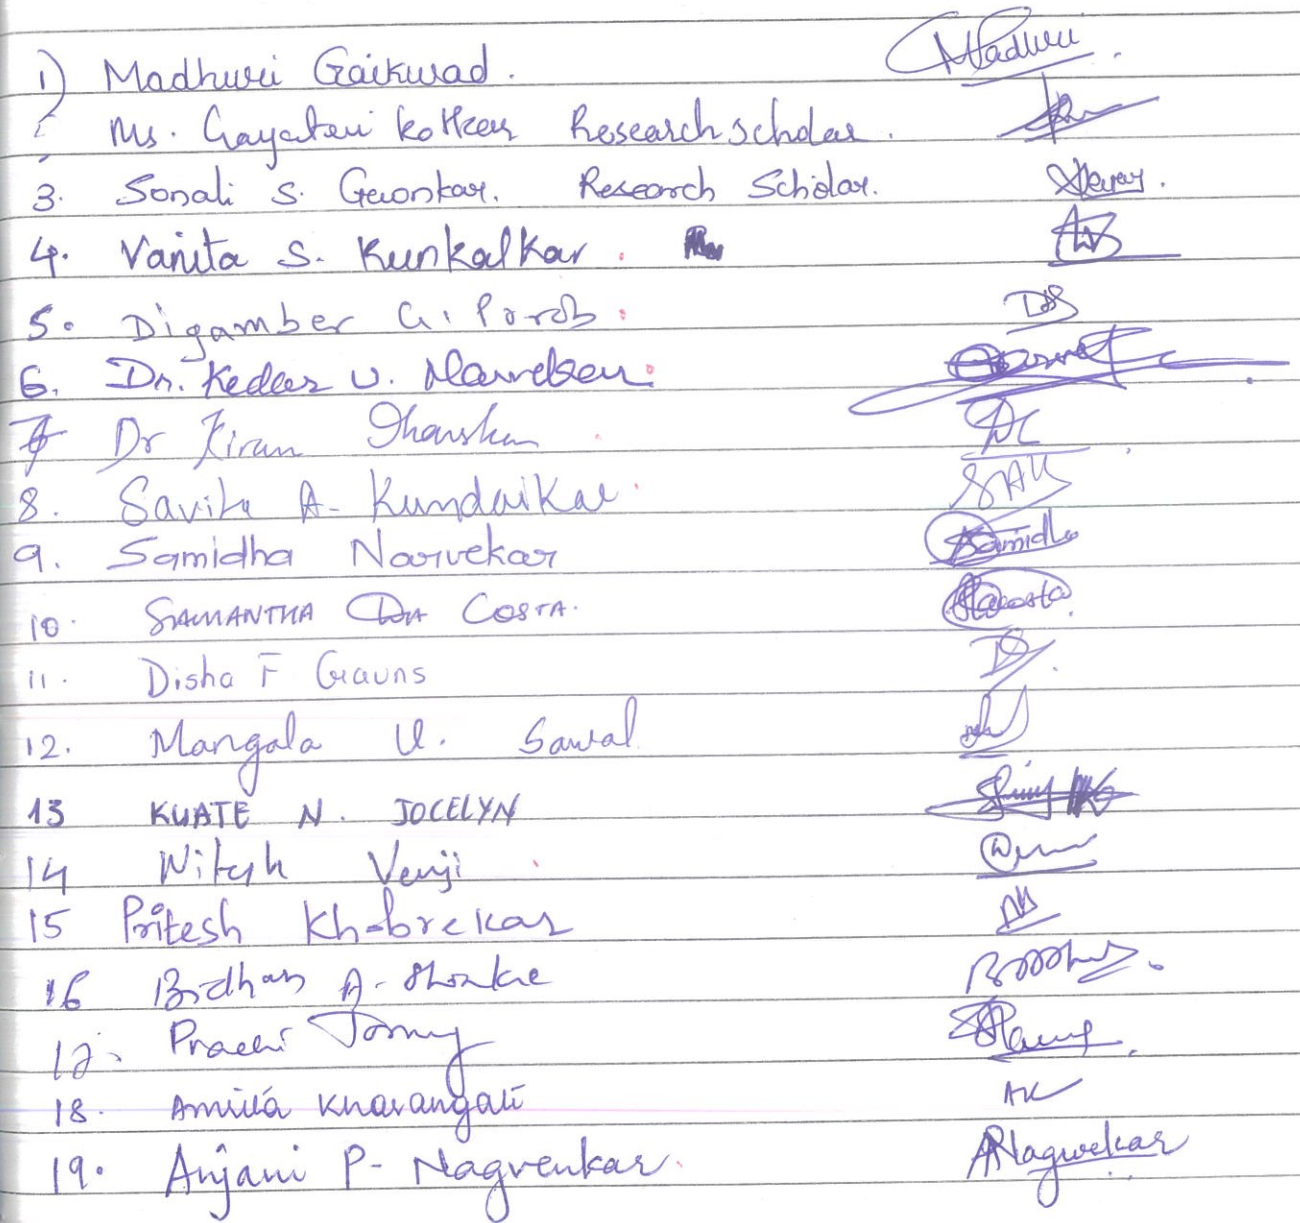 1) Madhuri Gaikwad. Madhuri.
Ms. Gayatri Kotkar Research scholar.
3. Sonali S. Gaonkar. Research Scholar.
4. Vanita S. Kunkalkar.
5. Digamber G. Porob.
6. Dr. Kedar U. Narvekar.
7 Dr Kiran Dharwadkar
8. Savita A. Kundaikar. SAK
9. Samidha Narvekar Samidha
10. SAMANTHA DA COSTA. Dacosta
11. Disha F Gauns
12. Mangala U. Sawal
13 KUATE N. JOCELYN
14 Nitesh Verji
15 Pritesh Khobrekar
16 Bidhan A.
17. Prachi
18. Amita Kharangate AK
19. Anjani P- Nagvenkar. Nagvekar